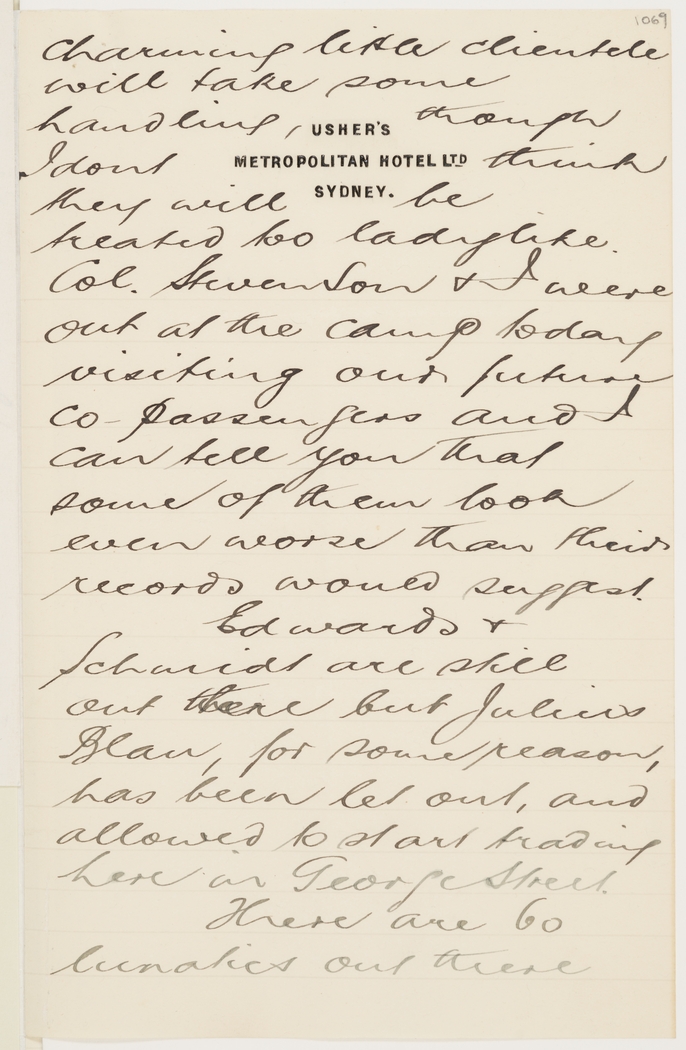 1069
charming little clientele
will take some
handling, though
USHER'S
I dont think
METROPOLITAN HOTEL LTD
they will be
SYDNEY.
treated too ladylike.
Col. Stevenson & I were
out at the camp today
visiting our future
co-passengers and I
can tell you that
some of them look
even worse than their
records would suggest.
Edwards &
Schmidt are still
out there but Julius
Blau, for some reason,
has been let out, and
allowed to start trading
here in George Street.
There are 60
lunatics out there